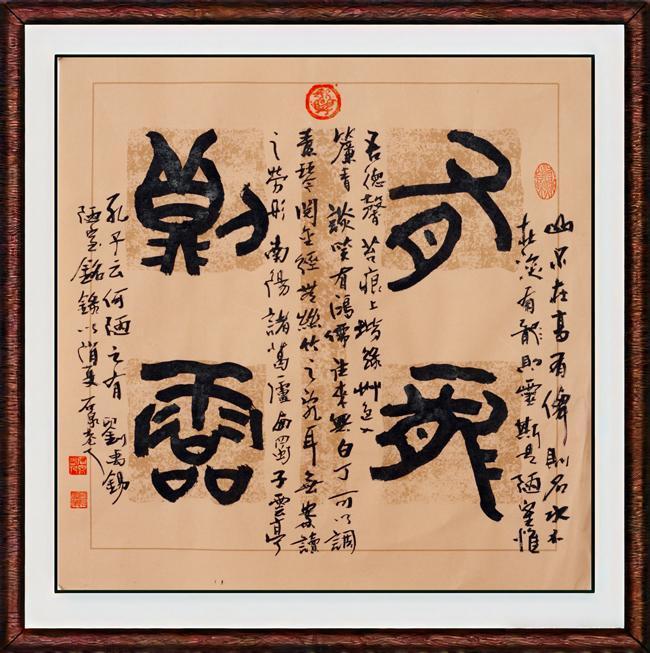 有龍
則靈
山不在高有僊則名水不
在深有龍則靈斯是陋室惟
吾德馨苔痕上堦綠艸色
簾青談笑有鴻儒往來無白丁可以調
素琴閱金經無絲竹之亂耳無案讀
之勞形南陽諸葛廬西蜀子雲亭
孔子云何陋之有劉禹錫
陋室銘錄以消夏